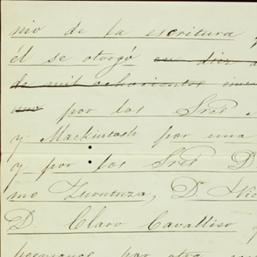 nio de la escritura
él se otorgó en diez
de mil ochocientos
uno por los Sres
y Mackintosh por una
y por los Sres D
mo Zuonunza, D.
D. Claro Cavallero y
hermanos por otra